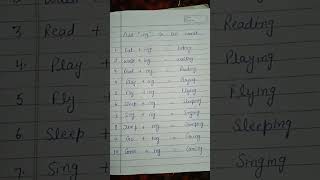 Add "ing" to the word.
1. Eat + ing = Eating
2. Walk + ing = walking
3. Read + ing = Reading
4. Play + ing = Playing
5. Fly + ing = Flying
6. Sleep + ing = Sleeping
7. Sing + ing = Singing
8. Jump + ing = Jumping
9. Go + ing = Going
10. Come + ing = Coming
3 Read + Reading
4. Play + Playing
5 Fly + Flying
6. Sleep + Sleeping
7. Sing + Singing